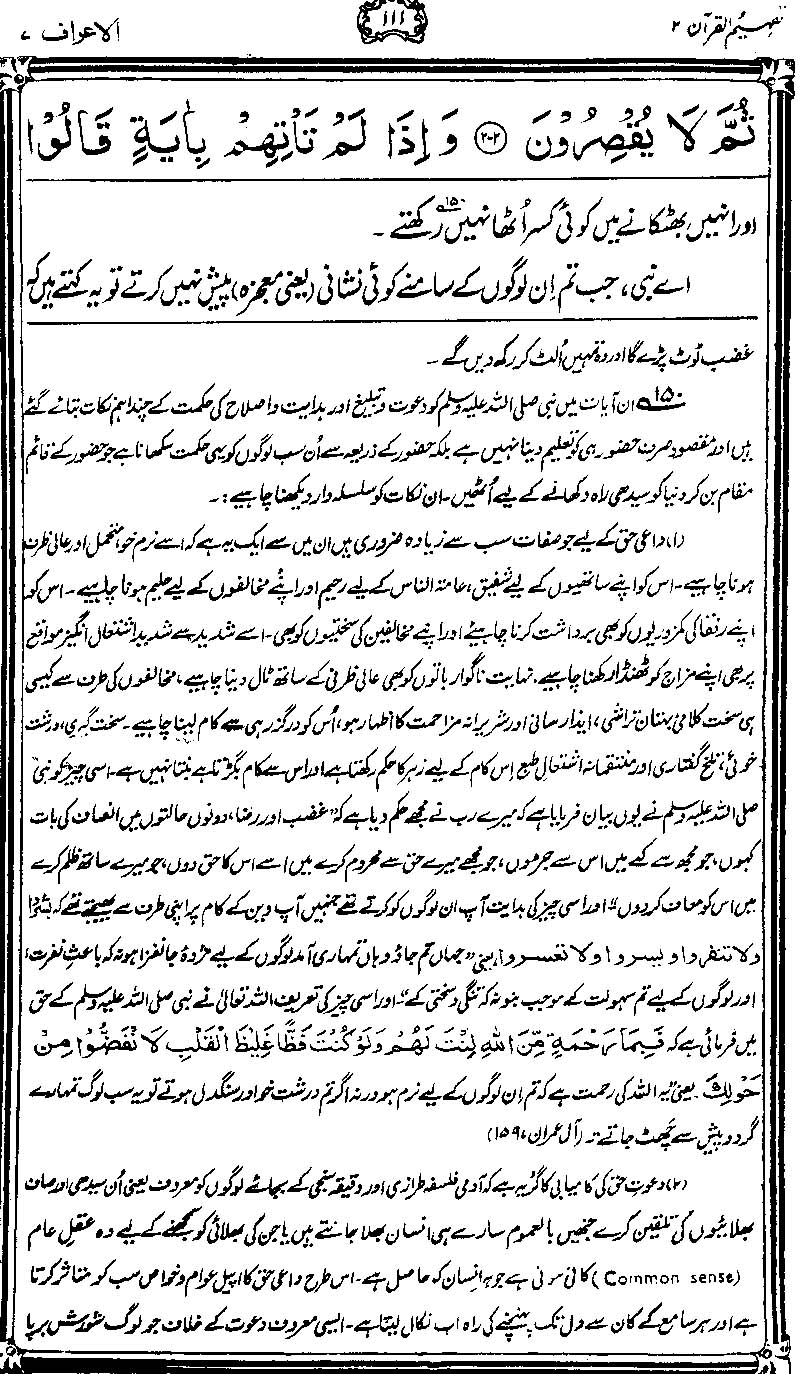 تفہیم القرآن ۲
۱۱۱
الاعراف ۷
ثُمَّ لَا يُقْصِرُوْنَ ۝۲۰۲ وَاِذَا لَمْ تَاْتِهِمْ بِاٰيَةٍ قَالُوْا
اور انہیں بھٹکانے میں کوئی کسر اُٹھا نہیں رکھتے۱۵۰۔
اے نبی، جب تم اِن لوگوں کے سامنے کوئی نشانی (یعنی معجزہ) پیش نہیں کرتے تو یہ کہتے ہیں کہ
غضب ٹوٹ پڑے گا اور وہ تمہیں اُلٹ کر رکھ دیں گے۔
۱۵۰ ان آیات میں نبی صلی اللہ علیہ وسلم کو دعوت و تبلیغ اور ہدایت و اصلاح کی حکمت کے چند اہم نکات بتائے گئے
ہیں اور مقصود صرف حضور ہی کو تعلیم دینا نہیں ہے بلکہ حضور کے ذریعہ سے اُن سب لوگوں کو یہی حکمت سکھانا ہے جو حضور کے قائم
مقام بن کر دنیا کو سیدھی راہ دکھانے کے لیے اُٹھیں۔ ان نکات کو سلسلہ وار دیکھنا چاہیے:۔
(۱) داعی حق کے لیے جو صفات سب سے زیادہ ضروری ہیں ان میں سے ایک یہ ہے کہ اسے نرم خو متحمل اور عالی ظرف
ہونا چاہیے۔ اس کو اپنے ساتھیوں کے لیے شفیق، عامۃ الناس کے لیے رحیم اور اپنے مخالفوں کے لیے حلیم ہونا چاہیے۔ اس کو
اپنے رفقا کی کمزوریوں کو بھی برداشت کرنا چاہیے اور اپنے مخالفین کی سختیوں کو بھی۔ اسے شدید سے شدید اشتعال انگیز مواقع
پر بھی اپنے مزاج کو ٹھنڈا رکھنا چاہیے، نہایت ناگوار باتوں کو بھی عالی ظرفی کے ساتھ ٹال دینا چاہیے، مخالفوں کی طرف سے کیسی
ہی سخت کلامی بہتان تراشی، ایذا رسانی اور شریرانہ مزاحمت کا اظہار ہو، اُس کو درگزر ہی سے کام لینا چاہیے۔ سخت گیری، درشت
خوئی، تلخ گفتاری اور منتقمانہ اشتعالِ طبع اِس کام کے لیے زہر کا حکم رکھتا ہے اور اس سے کام بگڑتا ہے بنتا نہیں ہے۔ اسی چیز کو نبی
صلی اللہ علیہ وسلم نے یوں بیان فرمایا ہے کہ میرے رب نے مجھے حکم دیا ہے کہ ”غضب اور رضا، دونوں حالتوں میں انصاف کی بات
کہوں، جو مجھ سے کٹے میں اس سے جڑوں، جو مجھے میرے حق سے محروم کرے میں اسے اس کا حق دوں، جو میرے ساتھ ظلم کرے
میں اس کو معاف کر دوں“ اور اسی چیز کی ہدایت آپ ان لوگوں کو کرتے تھے جنہیں آپ دین کے کام پر اپنی طرف سے بھیجتے تھے کہ بشروا
ولا تنفروا و یسروا ولا تعسروا، یعنی ”جہاں تم جاؤ وہاں تمہاری آمد لوگوں کے لیے مژدۂ جانفزا ہو نہ کہ باعثِ نفرت،
اور لوگوں کے لیے تم سہولت کے موجب بنو نہ کہ تنگی و سختی کے“ اور اسی چیز کی تعریف اللہ تعالیٰ نے نبی صلی اللہ علیہ وسلم کے حق
میں فرمائی ہے کہ فَبِمَا رَحْمَةٍ مِّنَ اللّٰهِ لِنْتَ لَهُمْ وَلَوْ كُنْتَ فَظًّا غَلِيْظَ الْقَلْبِ لَا نْفَضُّوْا مِنْ
حَوْلِكَ۔ یعنی ”یہ اللہ کی رحمت ہے کہ تم اِن لوگوں کے لیے نرم ہو ورنہ اگر تم درشت خو اور سنگدل ہوتے تو یہ سب لوگ تمہارے
گرد و پیش سے چھٹ جاتے“۔ (آل عمران، ۱۵۹)
(۲) دعوتِ حق کی کامیابی کا گر یہ ہے کہ آدمی فلسفہ طرازی اور دقیقہ سنجی کے بجائے لوگوں کو معروف یعنی اُن سیدھی اور صاف
بھلائیوں کی تلقین کرے جنہیں بالعموم سارے ہی انسان بھلا جانتے ہیں یا جن کی بھلائی کو سمجھنے کے لیے وہ عقلِ عام
(Common sense) کافی ہوتی ہے جو ہر انسان کو حاصل ہے۔ اس طرح داعی حق کا اپیل عوام و خواص سب کو متاثر کرتا
ہے اور ہر سامع کے کان سے دل تک پہنچنے کی راہ آپ نکال لیتا ہے۔ ایسی معروف دعوت کے خلاف جو لوگ شورش برپا